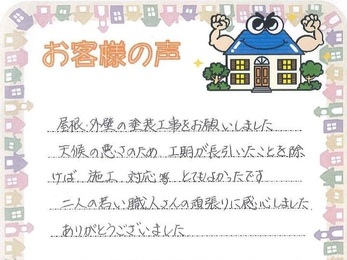 お客様の声
屋根・外壁の塗装工事をお願いしました
天候の悪さのため 工期が長引いたことを除
けば 施工 対応等 とてもよかったです
二人の若い職人さんの頑張りに感心しました
ありがとうございました